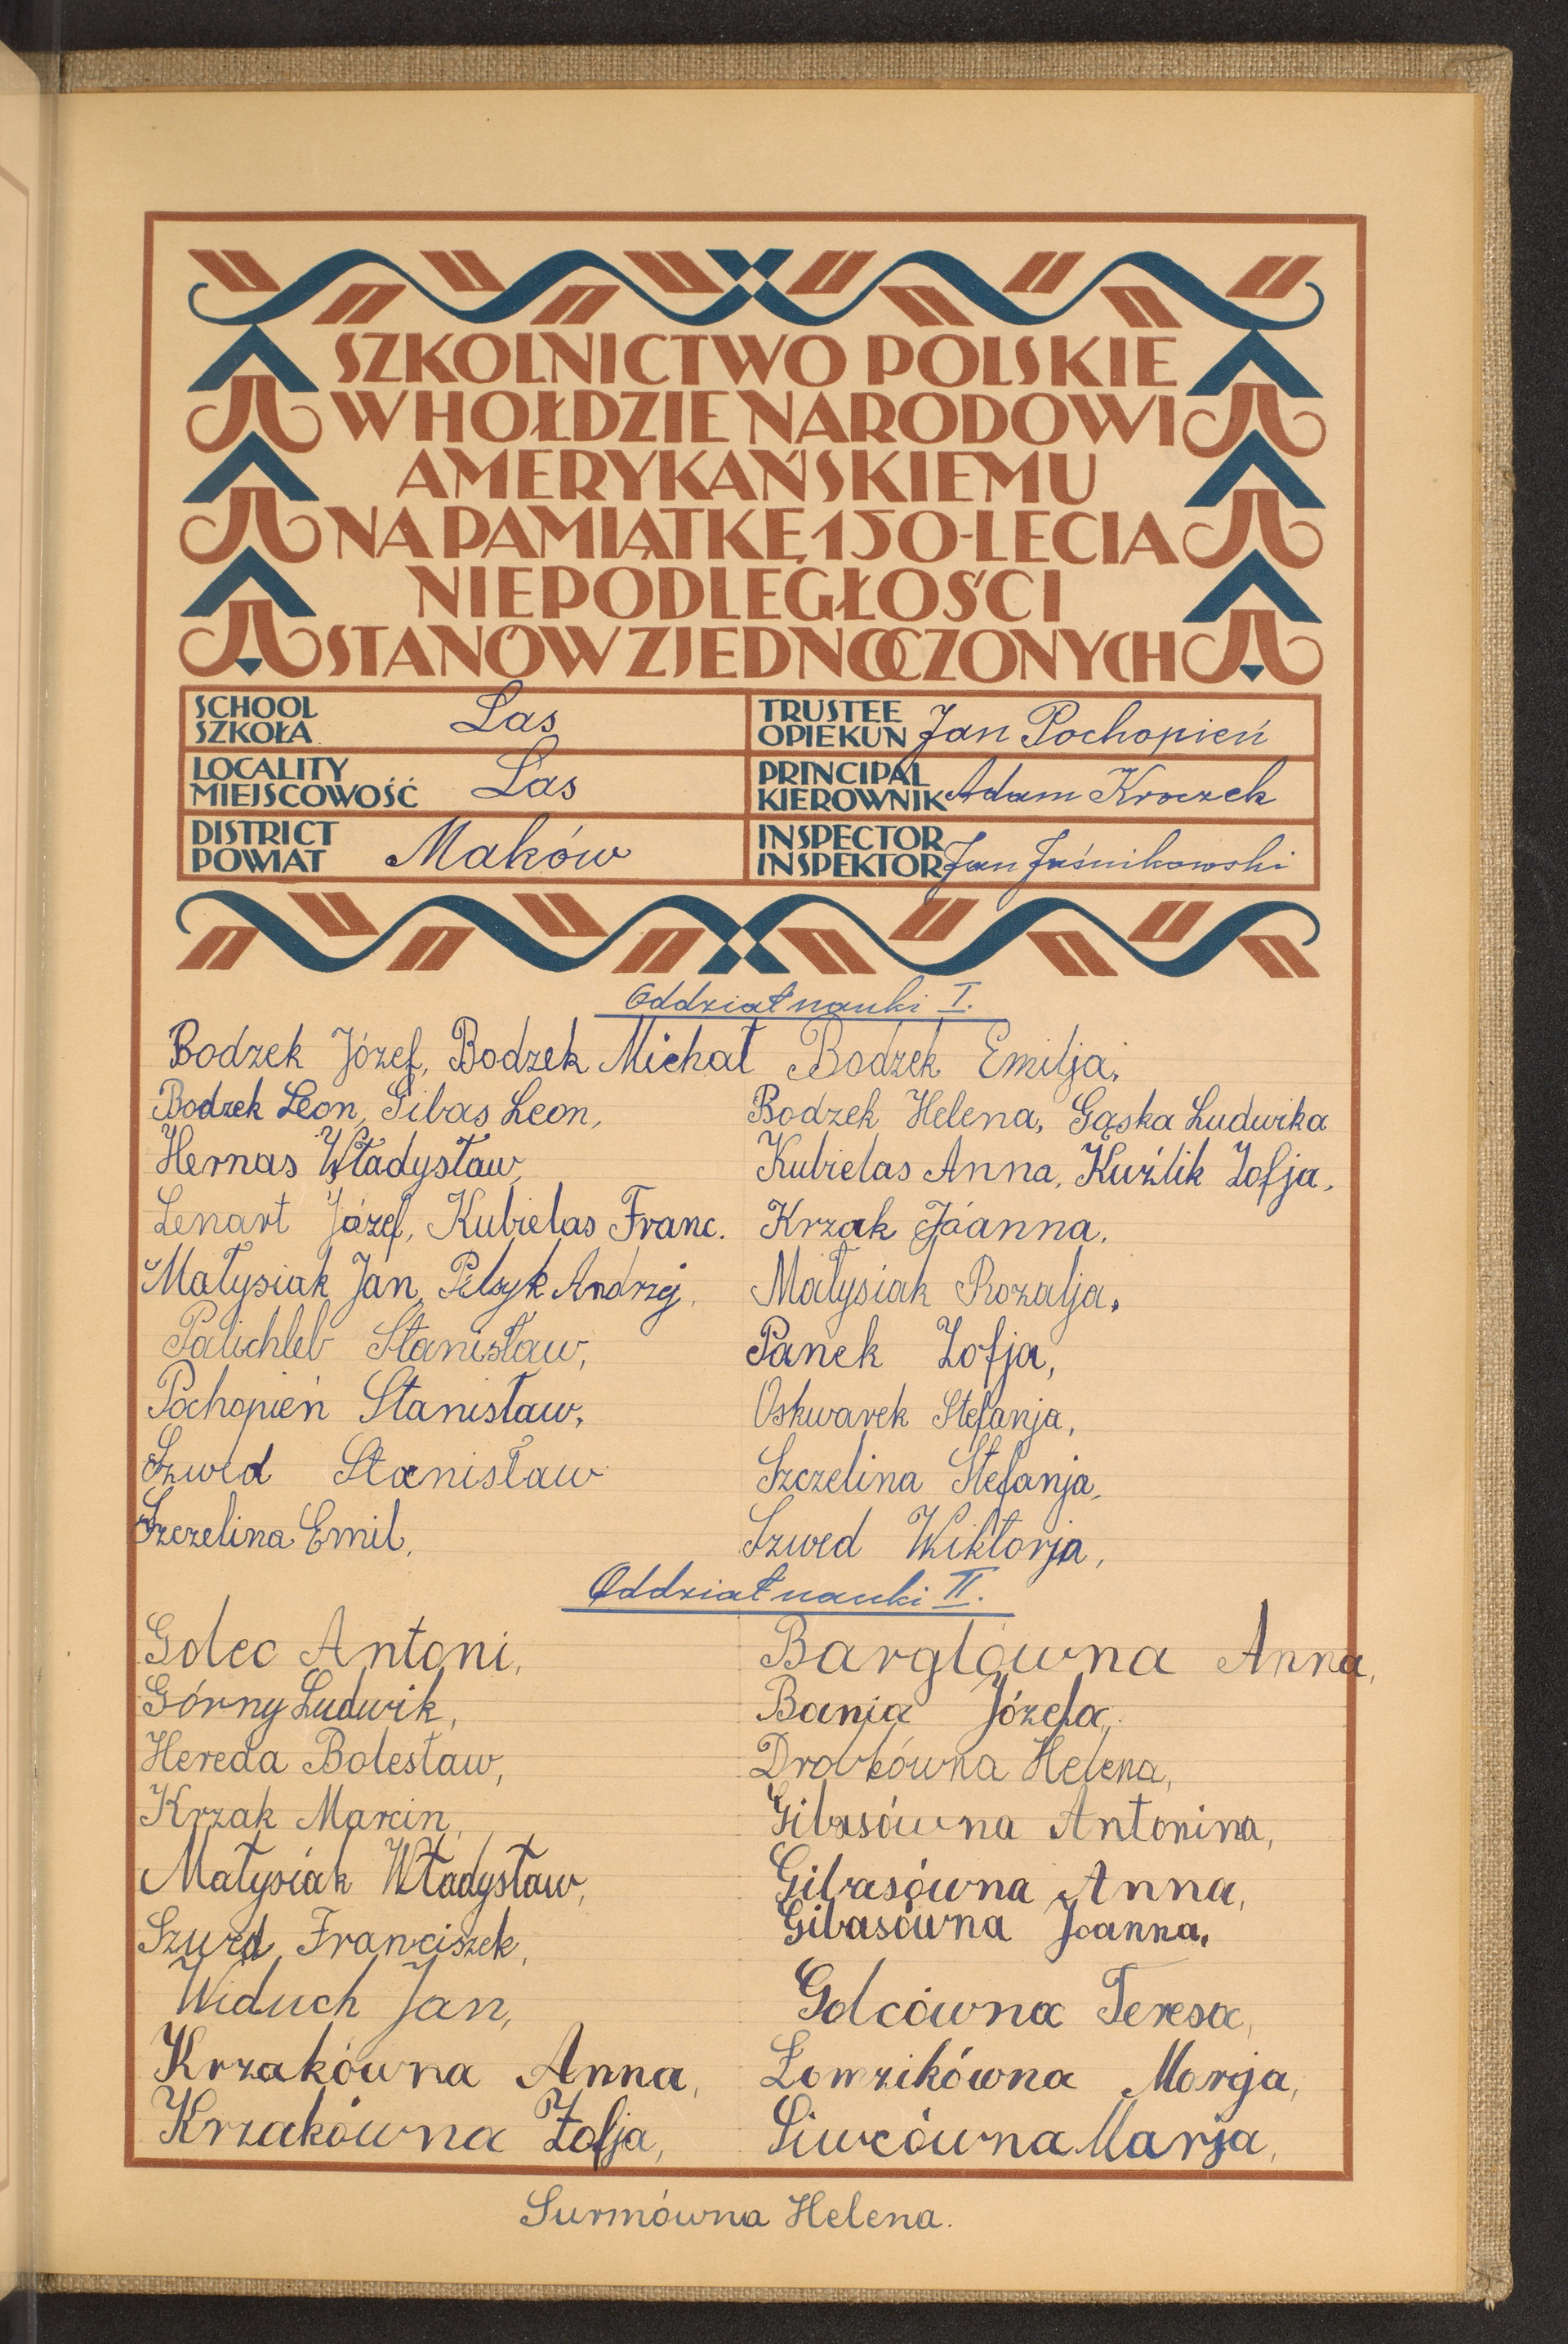 SZKOLNICTWO POLSKIE
W HOŁDZIE NARODOWI
AMERYKAŃSKIEMU
NA PAMIĄTKĘ 150-LECIA
NIEPODLEGŁOŚCI
STANÓW ZJEDNOCZONYCH
SCHOOL
SZKOŁA Las
TRUSTEE
OPIEKUN Jan Pochopień
LOCALITY
MIEJSCOWOŚĆ Las
PRINCIPAL
KIEROWNIK Adam Kroczek
DISTRICT
POWIAT Maków
INSPECTOR
INSPEKTOR Jan Jaśnikowski
Oddział nauki I.
Bodzek Józef, Bodzek Michał Bodzek Emilja,
Bodzek Leon, Gibas Leon,
Bodzek Helena, Gąska Ludwika
Hernas Władysław,
Kubielas Anna, Kuźlik Zofja,
Lenart Józef, Kubielas Franc.
Krzak Joanna,
Małysiak Jan, Andrzej,
Małysiak Rozalja,
Palichleb Stanisław,
Panek Zofja,
Pochopień Stanisław,
Oskwarek Stefanja,
Szwed Stanisław
Szczelina Stefanja,
Szczelina Emil,
Szwed Wiktorja,
Oddział nauki II.
Golec Antoni,
Barglówna Anna,
Górny Ludwik,
Bania Józefa,
Hereda Bolesław,
Helena,
Krzak Marcin,
Gibasówna Antonina,
Małysiak Władysław,
Gibasówna Anna,
Szwed Franciszek,
Gibasówna Joanna,
Widuch Jan,
Golcówna Teresa,
Krzakówna Anna,
Łomzikówna Marja,
Krzakówna Zofja,
Siwcówna Marja,
Surmówna Helena.